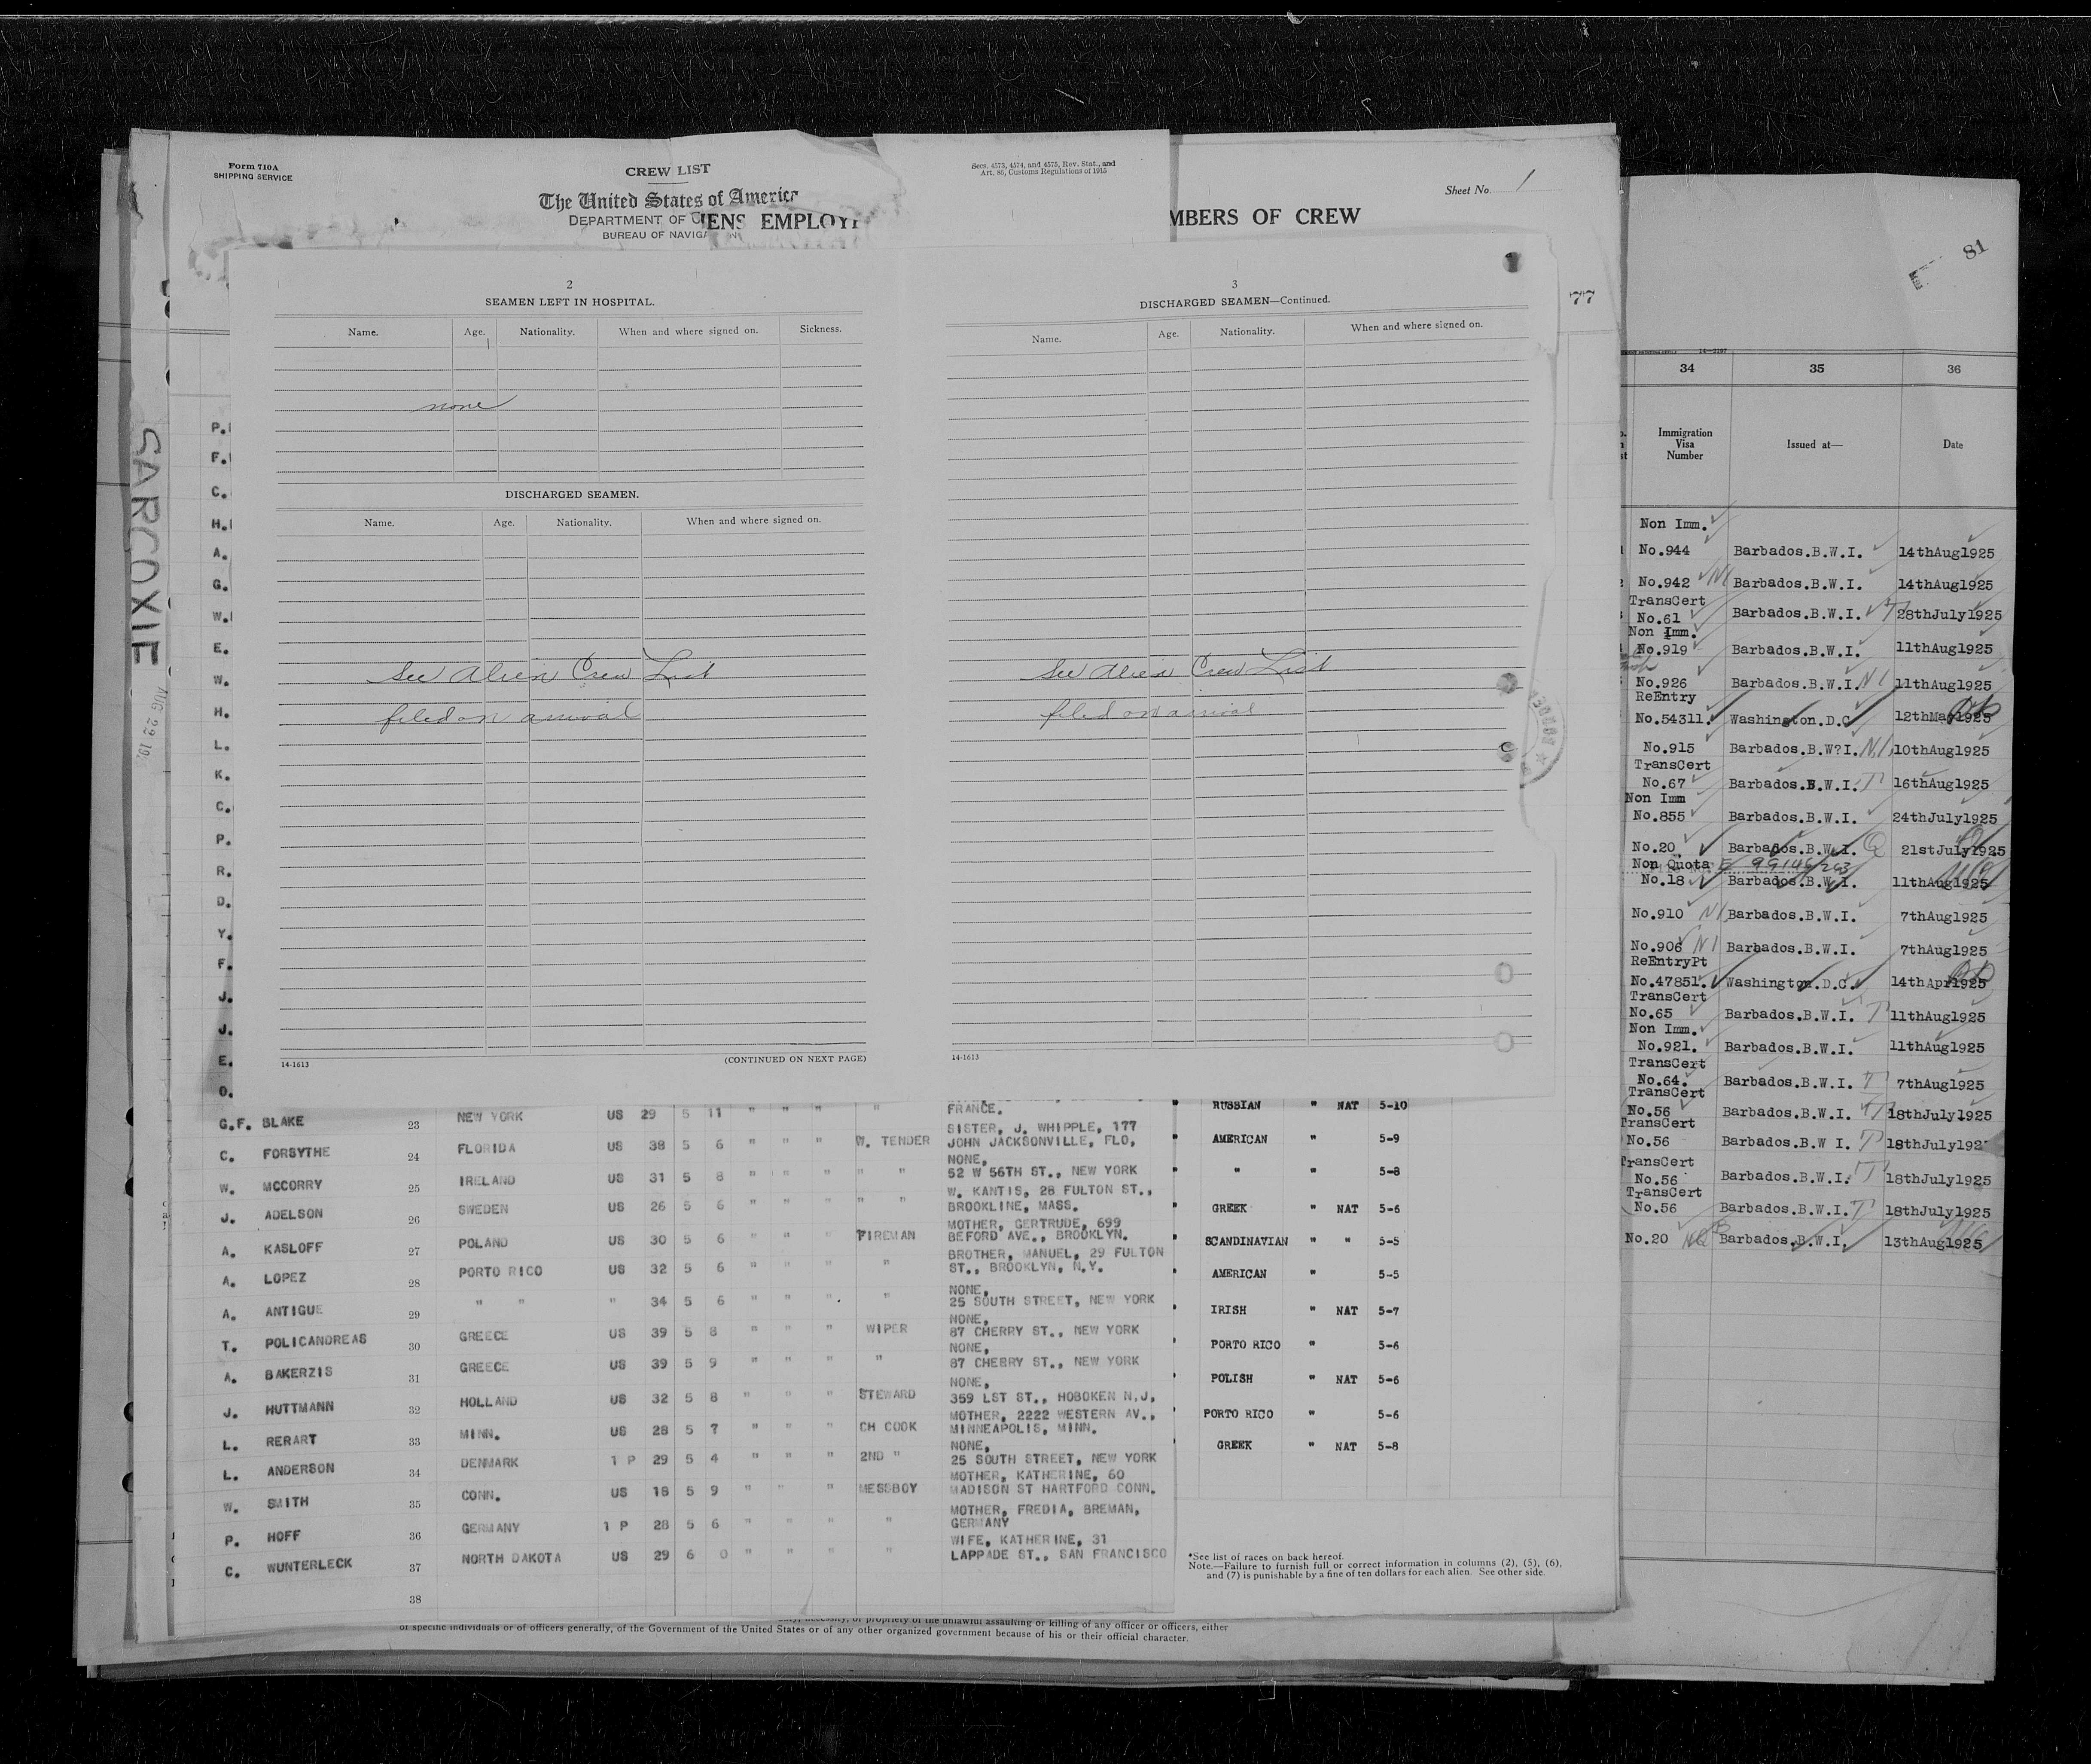 Form 710A
SHIPPING SERVICE
CREW LIST
The United States of America
DEPARTMENT OF
BUREAU OF
IENS EMPLOY
Secs. 4573, 4574, and 4575, Rev. Stat., and
Art. 86, Customs Regulations of 1915
Sheet No. 1
MBERS OF CREW
77
81
SARCOXIE
AUG 22 19
P.
F.
C.
H.
A.
G.
W.
E.
W.
H.
L.
K.
C.
P.
R.
D.
Y.
F.
J.
J.
E.
O.
2
SEAMEN LEFT IN HOSPITAL.
Name. Age. Nationality. When and where signed on. Sickness.
none
DISCHARGED SEAMEN.
Name. Age. Nationality. When and where signed on.
See Alien Crew List
filed on arrival
14-1613 (CONTINUED ON NEXT PAGE)
3
DISCHARGED SEAMEN—Continued.
Name. Age. Nationality. When and where signed on.
See Alien Crew List
filed on arrival
14-1613
G.F. BLAKE 23 NEW YORK US 29 5 11 " " " " FRANCE.
C. FORSYTHE 24 FLORIDA US 38 5 6 " " " W. TENDER SISTER, J. WHIPPLE, 177
JOHN JACKSONVILLE, FLO,
W. MCCORRY 25 IRELAND US 31 5 8 " " " " " NONE,
52 W 56TH ST., NEW YORK
J. ADELSON 26 SWEDEN US 26 5 6 " " " " " W. KANTIS, 28 FULTON ST.,
BROOKLINE, MASS.
A. KASLOFF 27 POLAND US 30 5 6 " " " FIREMAN MOTHER, GERTRUDE, 699
BEFORD AVE., BROOKLYN.
A. LOPEZ 28 PORTO RICO US 32 5 6 " " " " BROTHER, MANUEL, 29 FULTON
ST., BROOKLYN, N.Y.
A. ANTIGUE 29 " " " 34 5 6 " " " " NONE,
25 SOUTH STREET, NEW YORK
T. POLICANDREAS 30 GREECE US 39 5 8 " " " WIPER NONE,
87 CHERRY ST., NEW YORK
A. BAKERZIS 31 GREECE US 39 5 9 " " " " NONE,
87 CHERRY ST., NEW YORK
J. HUTTMANN 32 HOLLAND US 32 5 8 " " " STEWARD NONE,
359 LST ST., HOBOKEN N.J,
L. RERART 33 MINN. US 28 5 7 " " " CH COOK MOTHER, 2222 WESTERN AV.,
MINNEAPOLIS, MINN.
L. ANDERSON 34 DENMARK 1 P 29 5 4 " " " 2ND " NONE,
25 SOUTH STREET, NEW YORK
W. SMITH 35 CONN. US 18 5 9 " " " MESSBOY MOTHER, KATHERINE, 60
MADISON ST HARTFORD CONN.
P. HOFF 36 GERMANY 1 P 28 5 6 " " " " MOTHER, FREDIA, BREMAN,
GERMANY
C. WUNTERLECK 37 NORTH DAKOTA US 29 6 0 " " " " WIFE, KATHERINE, 31
LAPPADE ST., SAN FRANCISCO
38
" RUSSIAN " NAT 5-10
" AMERICAN " 5-9
" " " 5-8
" GREEK " NAT 5-6
" SCANDINAVIAN " " 5-5
" AMERICAN " 5-5
" IRISH " NAT 5-7
" PORTO RICO " 5-6
" POLISH " NAT 5-6
" PORTO RICO " 5-6
" GREEK " NAT 5-8
*See list of races on back hereof.
Note.—Failure to furnish full or correct information in columns (2), (5), (6),
and (7) is punishable by a fine of ten dollars for each alien. See other side.
or propriety of the unlawful assaulting or killing of any officer or officers, either
of specific individuals or of officers generally, of the Government of the United States or of any other organized government because of his or their official character.
14-2187
34 35 36
Immigration
Visa
Number
Issued at— Date
Non Imm.
No.944 Barbados.B.W.I. 14thAug1925
No.942 NI Barbados.B.W.I. 14thAug1925
TransCert
No.61 Barbados.B.W.I. T 28thJuly1925
Non Imm.
No.919 Barbados.B.W.I. 11thAug1925
No.926 Barbados.B.W.I. NI 11thAug1925
ReEntry
No.54311. Washington.D.C 12thMay1925
No.915 Barbados.B.W?I. NI 10thAug1925
TransCert
No.67 Barbados.B.W.I. T 16thAug1925
Non Imm
No.855 Barbados.B.W.I. 24thJuly1925
No.20 Barbados.B.W.I. Q 21stJuly1925
Non Quota
No.18 Barbados.B.W.I. 11thAug1925
No.910 NI Barbados.B.W.I. 7thAug1925
No.906 NI Barbados.B.W.I. 7thAug1925
ReEntryPt
No.47851. Washington.D.C. 14thApr1925
TransCert
No.65 Barbados.B.W.I. T 11thAug1925
Non Imm.
No.921. Barbados.B.W.I. 11thAug1925
TransCert
No.64. Barbados.B.W.I. T 7thAug1925
TransCert
No.56 Barbados.B.W.I. T 18thJuly1925
TransCert
No.56 Barbados.B.W I. T 18thJuly192
TransCert
No.56 Barbados.B.W.I. T 18thJuly1925
TransCert
No.56 Barbados.B.W.I. T 18thJuly1925
No.20 NQ Barbados.B.W.I, 13thAug1925